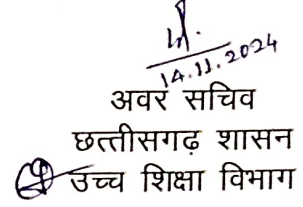 14.11.2024
अवर सचिव
छत्तीसगढ़ शासन
उच्च शिक्षा विभाग